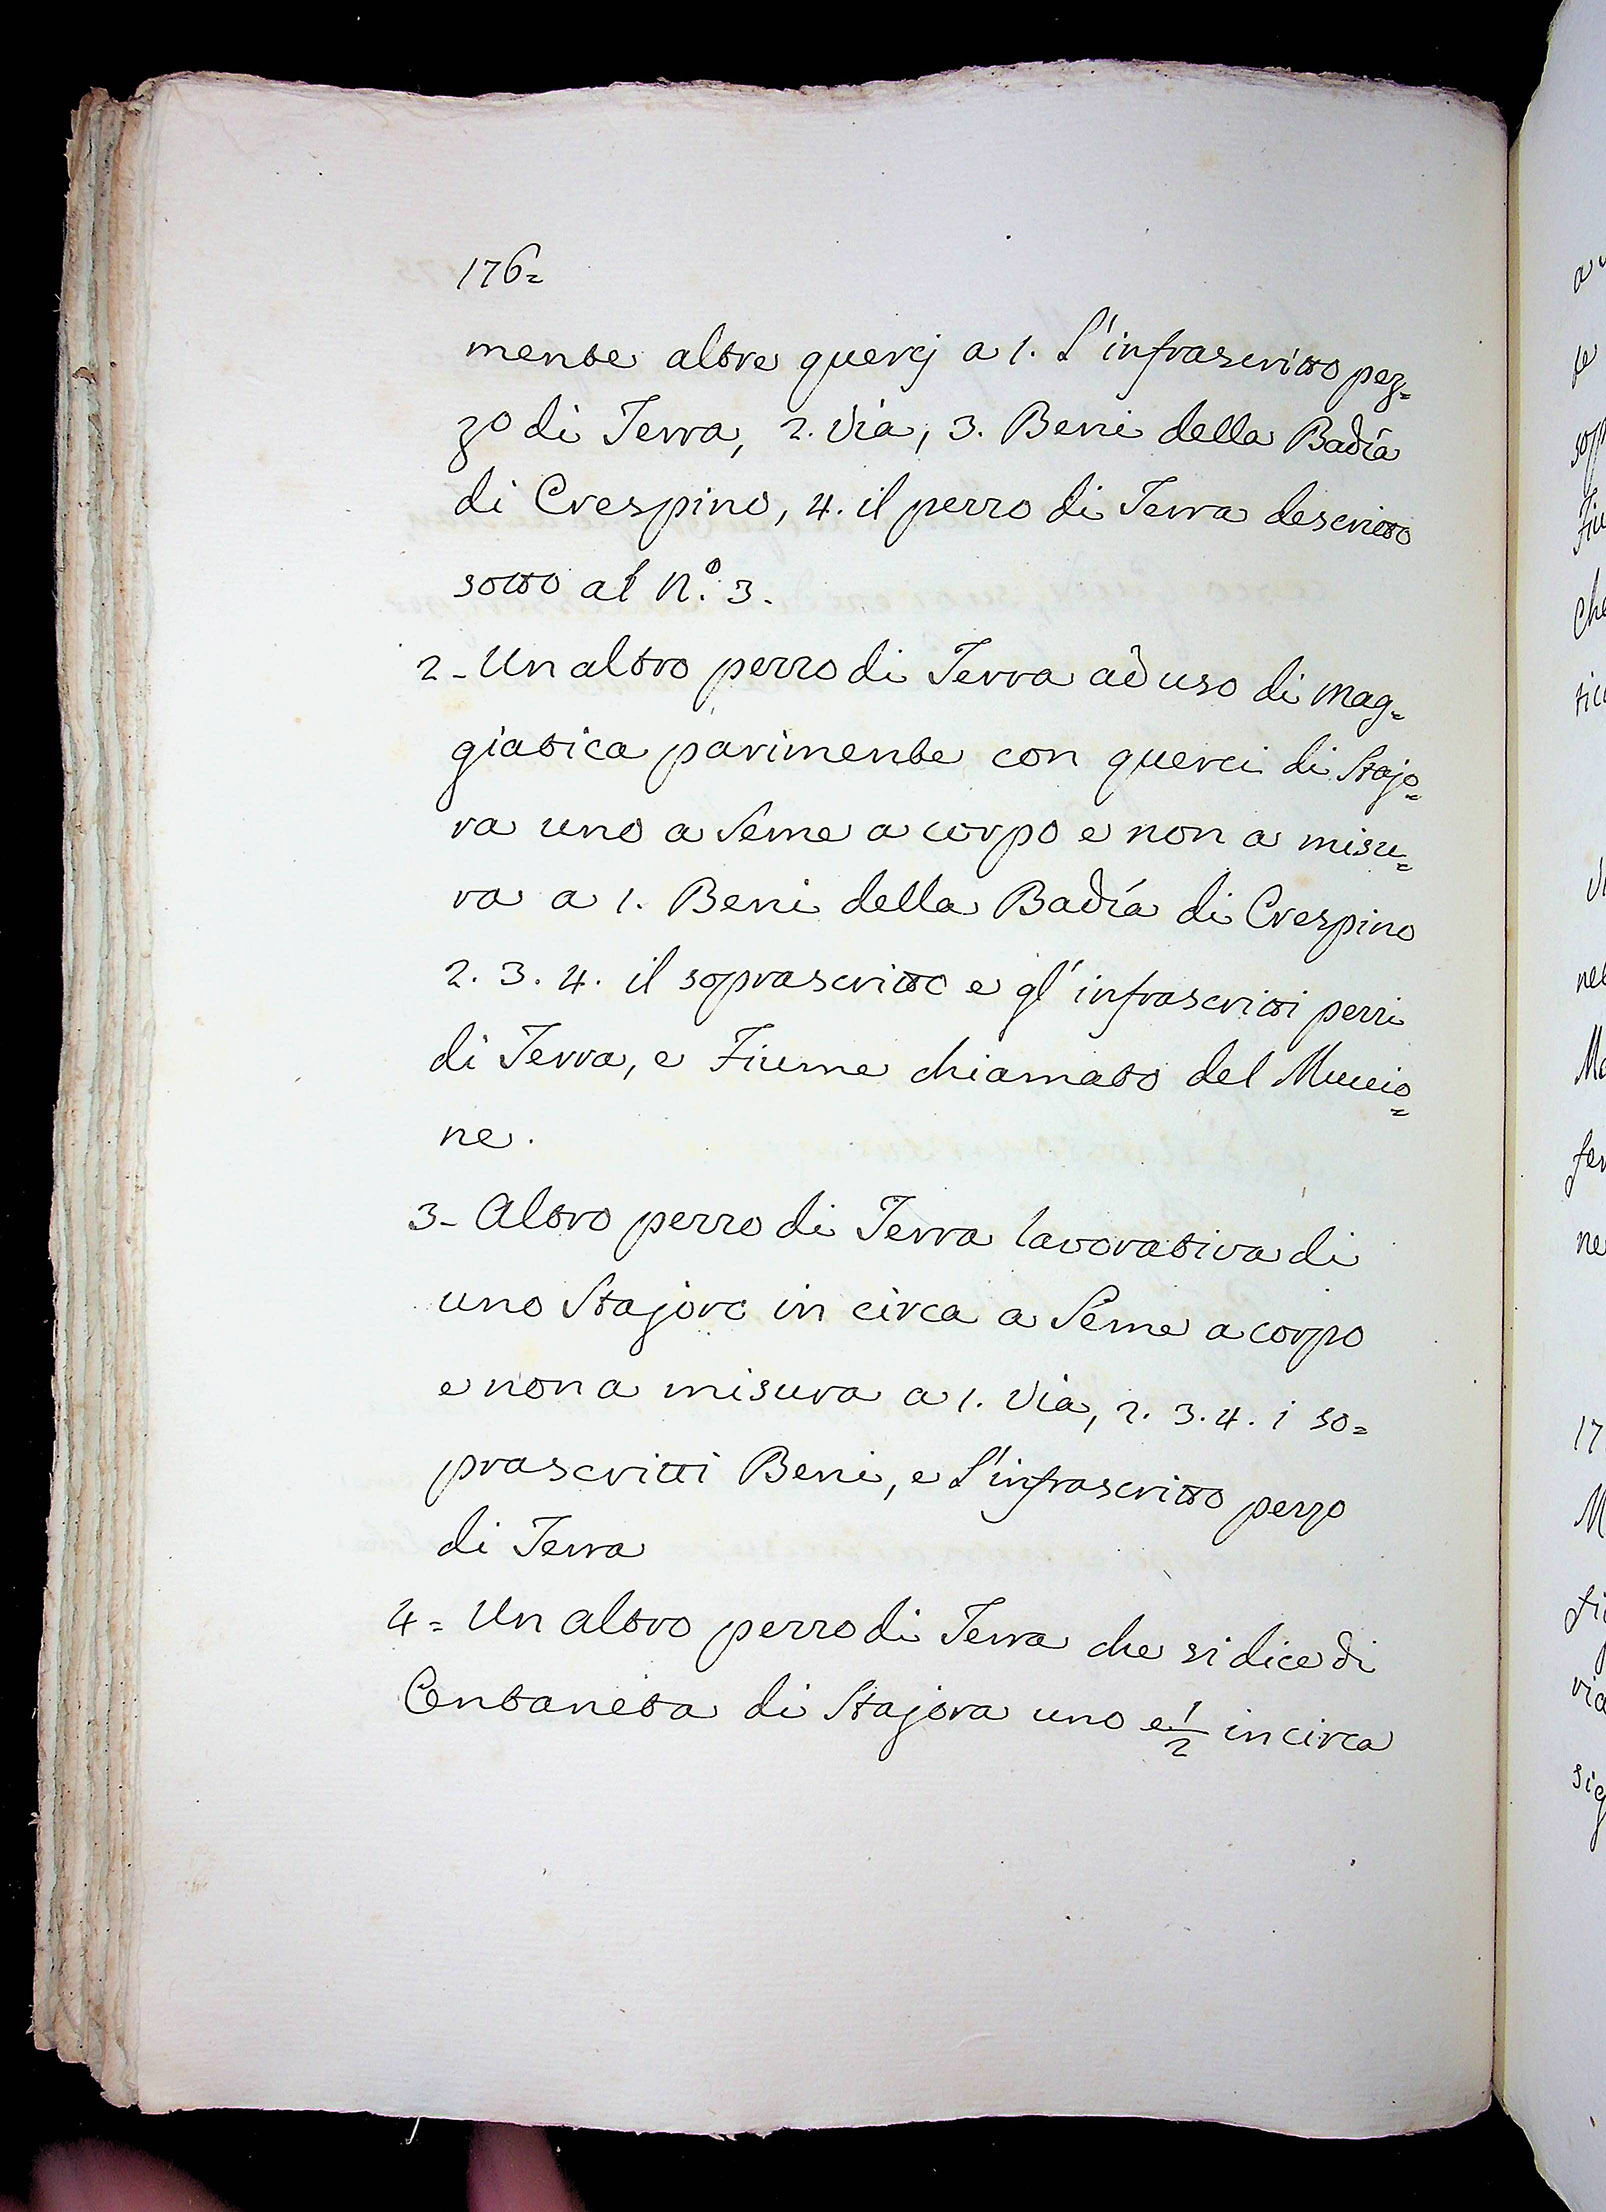 176=
mente altre quercj a 1. L'infrascritto pez=
zo di Terra, 2. Via, 3. Beni della Badía
di Crespino, 4. il pezzo di Terra descritto
sotto al N.º 3.
2- Un altro pezzo di Terra ad uso di Mag=
giatica parimente con querci di Stajo=
ra uno a Seme a corpo e non a misu=
ra a 1. Beni della Badía di Crespino
2. 3. 4. il soprascritto e gl'infrascritti pezzi
di Terra, e Fiume chiamato del Muccio=
ne.
3- Altro pezzo di Terra lavorativa di
uno Stajoro in circa a Seme a corpo
e non a misura a 1. Via, 2. 3. 4. i so=
prascritti Beni, e l'infrascritto pezzo
di Terra
4= Un altro pezzo di Terra che si dice di
Centaneta di Stajora uno e 1/2 in circa